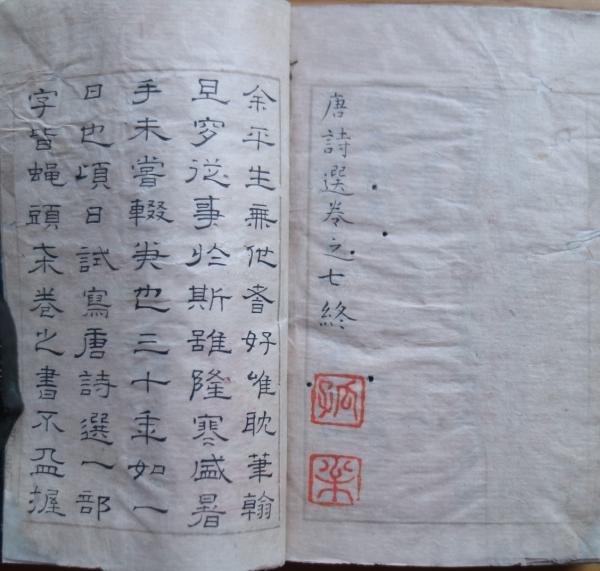 唐詩選卷之七終
余平生無他耆好唯耽筆翰
旦穸從事於斯雖隆寒盛暑
手未嘗輟矣也三十年如一
日也頃日試寫唐詩選一部
字皆蝿頭桼卷之書不盈握